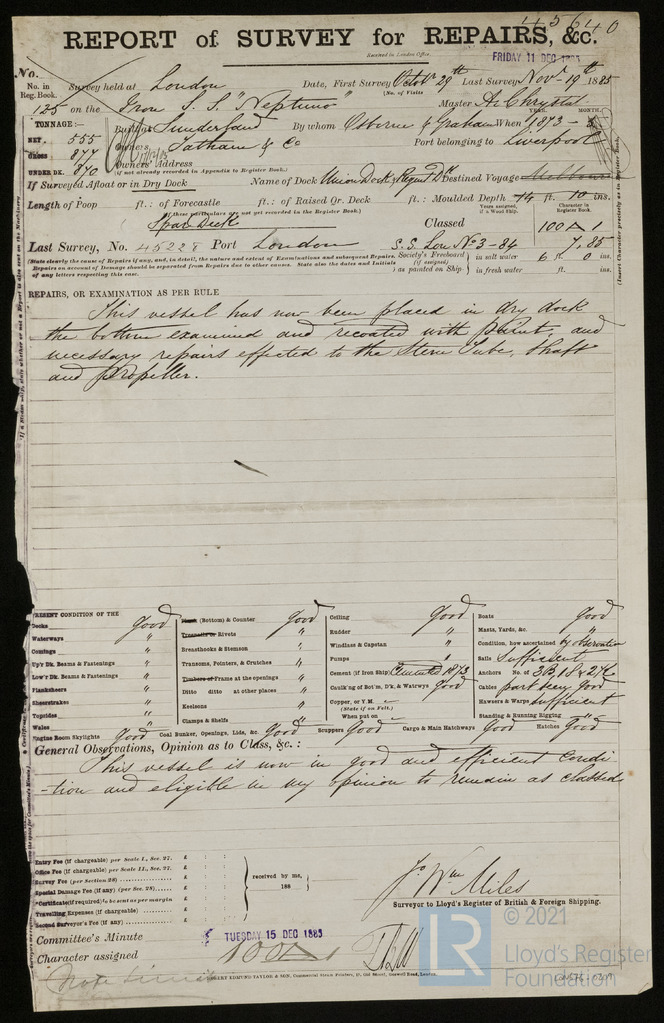 45640
REPORT of SURVEY for REPAIRS, &c.
Received in London Office.
FRIDAY 11 DEC 1885
No.
No. in Reg. Book.
Survey held at London Date, First Survey Octob 29th Last Survey Novr 19th 1885
(No. of Visits)
125 on the Iron S.S. "Neptuno" Master A. Chrystie
TONNAGE:— Built at Sunderland By whom Osborne & Graham When 1873 -
YEAR. MONTH.
NET. 555
GROSS 877
UNDER DK. 870
Owners Tatham & Co Port belonging to Liverpool
Owners' Address
(if not already recorded in Appendix to Register Book.)
If Surveyed Afloat or in Dry Dock Name of Dock Union Dock & Regent Dk Destined Voyage
Length of Poop ft.: of Forecastle ft.: of Raised Qr. Deck ft.: Moulded Depth 14 ft. 10 ins.
(If these particulars are not yet recorded in the Register Book.)
Spar Deck Classed 100 A 1
Years assigned, if a Wood Ship.
Character in Register Book.
Last Survey, No. 45228 Port London S.S. Lon No 3 - 84 7.85
(State clearly the cause of Repairs if any, and, in detail, the nature and extent of Examinations and subsequent Repairs.
Repairs on account of Damage should be separated from Repairs due to other causes. State also the dates and Initials
of any letters respecting this case.
Society's Freeboard (if assigned) as painted on Ship in salt water 6 ft. 0 ins.
in fresh water ft. ins.
REPAIRS, OR EXAMINATION AS PER RULE
This vessel has now been placed in dry dock
the bottom examined and recoated with paint, and
necessary repairs effected to the Stern Tube, Shaft
and Propeller.
PRESENT CONDITION OF THE
Decks Good
Waterways "
Comings "
Upr Dk. Beams & Fastenings "
Low'r Dk. Beams & Fastenings "
Planksheers "
Sheerstrakes "
Topsides "
Wales "
Engine Room Skylights Good
(Bottom) & Counter Good
Rivets "
Breasthooks & Stemson "
Transoms, Pointers, & Crutches "
Timbers or Frame at the openings "
Ditto ditto at other places "
Keelsons "
Clamps & Shelfs "
Coal Bunker, Openings, Lids, &c. Good
Ceiling Good
Rudder "
Windlass & Capstan "
Pumps "
Cement (if Iron Ship) Cemented 1873
Caulk'ng of Bot'm, D'k, & Watrwys Good
Copper, or Y.M.
(State if on Felt.)
When put on
Scuppers Good
Cargo & Main Hatchways Good
Boats Good
Masts, Yards, &c. "
Condition, how ascertained by observation
Sails Sufficient
Anchors No. of 3B, 1S & 2K
Cables part very good
Hawsers & Warps sufficient
Standing & Running Rigging "
Hatches Good
General Observations, Opinion as to Class, &c. :
This vessel is now in good and efficient condi
-tion and eligible in my opinion to remain as classed
Entry Fee (if chargeable) per Scale I., Sec. 27. £ : :
Office Fee (if chargeable) per Scale II., Sec. 27. £ : :
Survey Fee (per Section 28) £ : :
Special Damage Fee (if any) (per Sec. 28) £ : :
Certificate (if required) to be sent as per margin
Travelling Expenses (if chargeable) £ : :
Second Surveyor's Fee (if any) £ : :
received by me,
188
Jo Wm Miles
Surveyor to Lloyd's Register of British & Foreign Shipping.
Committee's Minute TUESDAY 15 DEC 1885
Character assigned 100 A 1
ROBERT EDMUND TAYLOR & SON, Commercial Steam Printers, 19, Old Street, Goswell Road, London.
LR
© 2021
Lloyd's Register
Foundation